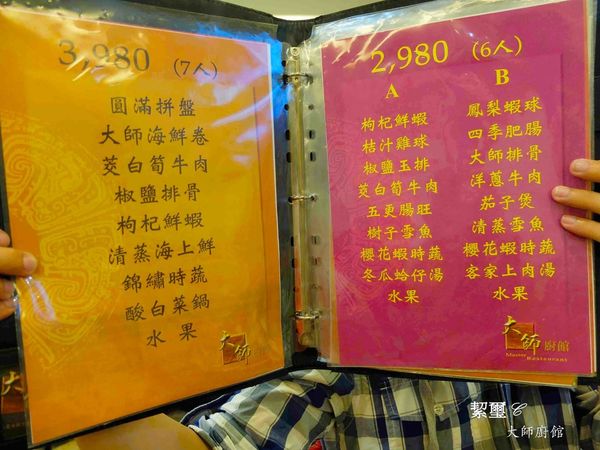 3,980 (7人)
圓滿拼盤
大師海鮮卷
茭白筍牛肉
椒鹽排骨
枸杞鮮蝦
清蒸海上鮮
錦繡時蔬
酸白菜鍋
水果
大師廚館
2,980 (6人)
A
枸杞鮮蝦
桔汁雞球
椒鹽玉排
茭白筍牛肉
五更腸旺
樹子雪魚
櫻花蝦時蔬
冬瓜蛤仔湯
水果
B
鳳梨蝦球
四季肥腸
大師排骨
洋蔥牛肉
茄子煲
清蒸雪魚
櫻花蝦時蔬
客家上肉湯
水果
大師廚館
Master Restaurant
絜璽
大師廚館